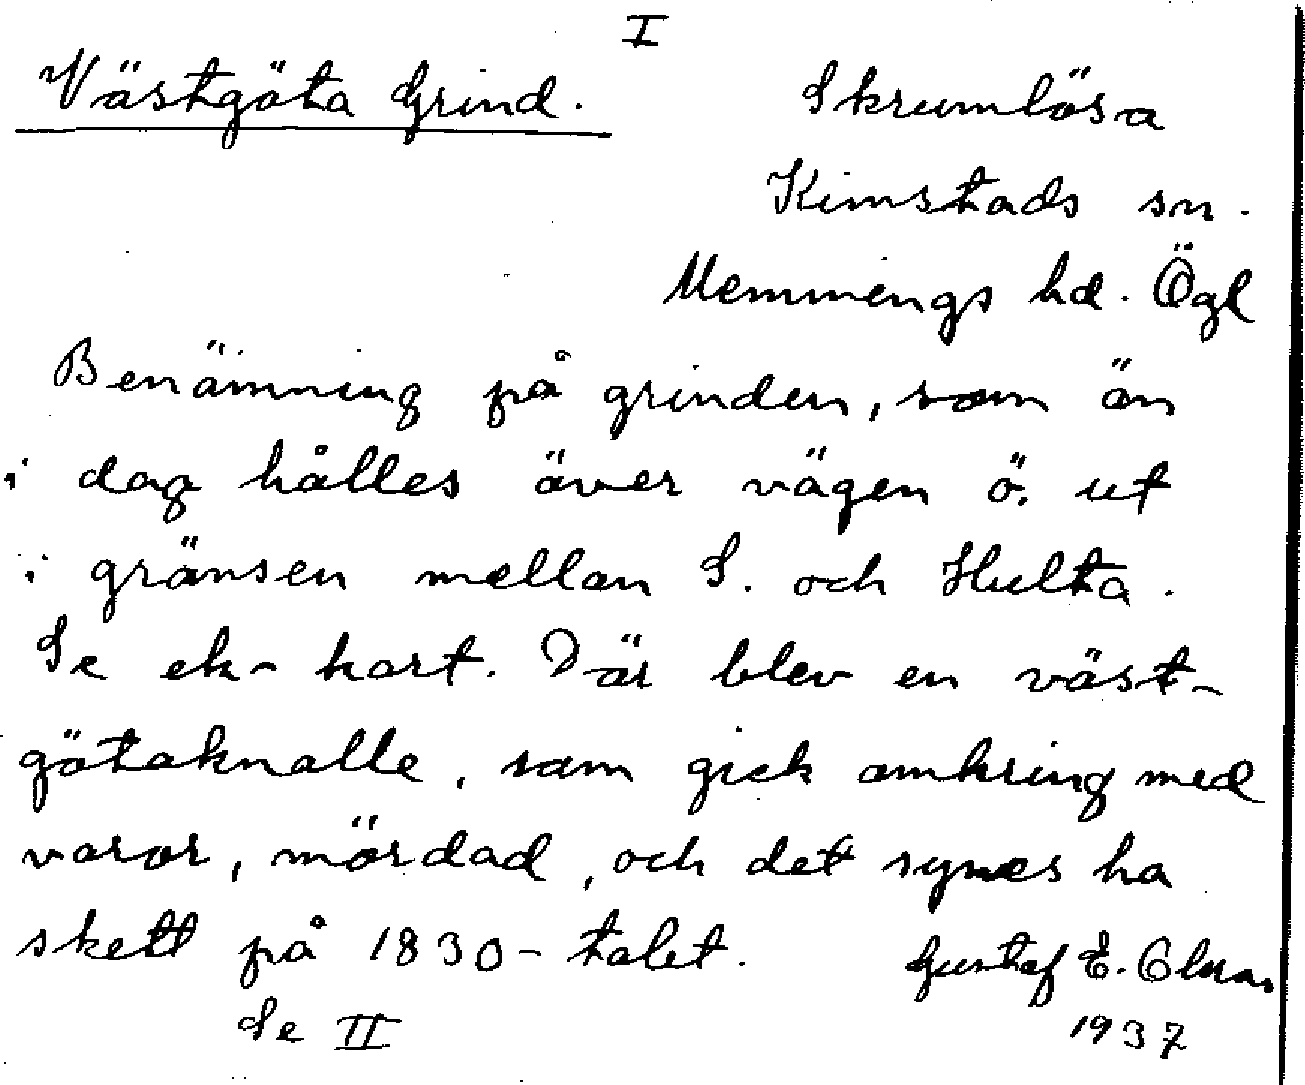 I
Västgöta Grind.
Skrumlösa
Kimstads sn.
Memmings hd. Ögl
Benämning på grinden, som än
i dag hålles över vägen ö. ut
i gränsen mellan S. och Hulta.
Se ek-kart. Där blev en väst-
götaknalle, som gick omkring med
varor, mördad, och det synes ha
skett på 1830-talet. Gustaf E.
Se II
1937